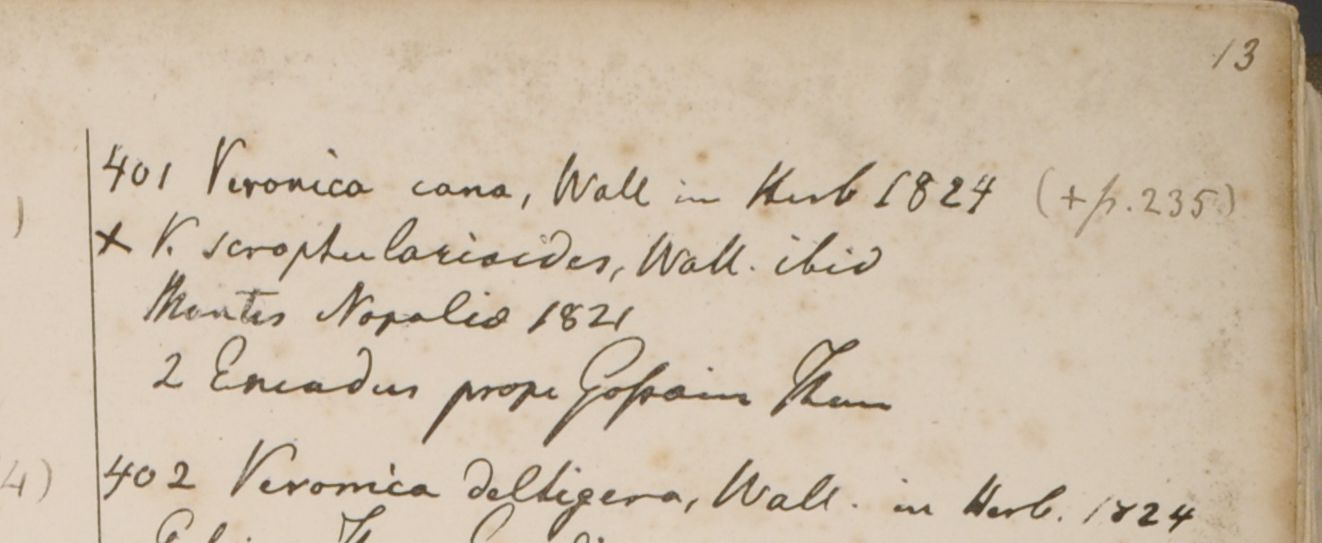 13
401 Veronica cana, Wall in Herb 1824 (+p. 235)
+ V. scrophularioides, Wall. ibid
Montes Napaliæ 1821
2 prope Gossain Than
4) 402 Veronica deltigera, Wall. in Herb. 1824